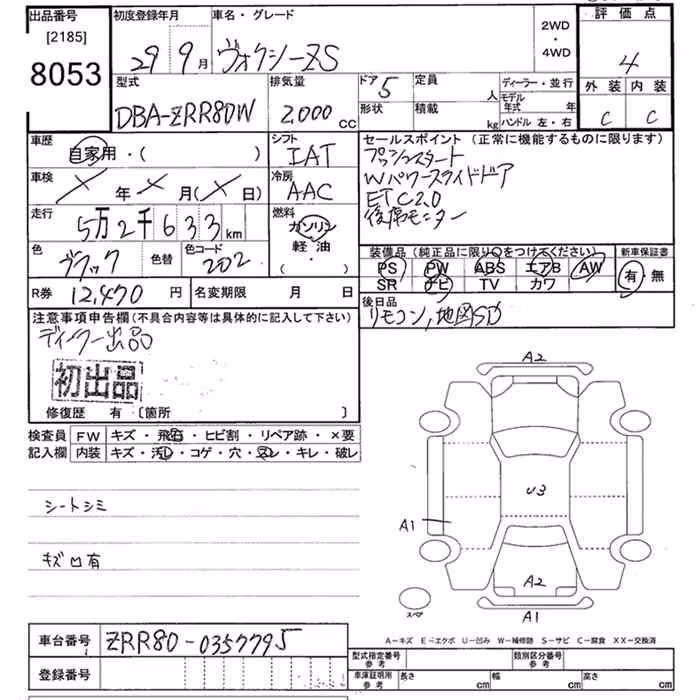 出品番号
[2185]
8053
初度登録年月
29 9月
車名・グレード
ヴォクシーZS
2WD
・
4WD
評価点
4
外装 内装
C C
型式
DBA-ZRR80W
排気量
2,000 cc
ドア 5
形状
定員 人
積載 kg
ディーラー・並行
モデル年式 年
ハンドル 左・右
車歴
自家用・( )
シフト
IAT
車検
× 年 × 月(× 日)
冷房
AAC
走行
5万2千633km
燃料
ガソリン
軽・油
・( )
色
ブラック
色替
色コード
202
R券 12,470 円
名変期限 月 日
セールスポイント (正常に機能するものに限ります)
プッシュスタート
Wパワースライドドア
ETC2.0
後席モニター
装備品(純正品に限り○をつけてください)
PS PW ABS エアB AW
SR ナビ TV カワ
新車保証書
有・無
後日品
リモコン,地図SD
注意事項申告欄(不具合内容等は具体的に記入して下さい)
ディーラー出品
初出品
修復歴 有 〔箇所 〕
検査員記入欄
FW キズ・飛石・ヒビ割・リペア跡・×要
内装 キズ・汚レ・コゲ・穴・スレ・キレ・破レ
シートシミ
キズ凹有
A2
U3
A1
A2
A1
スペア
A-キズ E-エクボ U-凹み W-補修跡 S-サビ C-腐食 XX-交換済
車台番号 ZRR80-0357795
登録番号
型式指定番号 参考
類別区分番号 参考
車庫証明用 参考
長さ cm 幅 cm 高さ cm